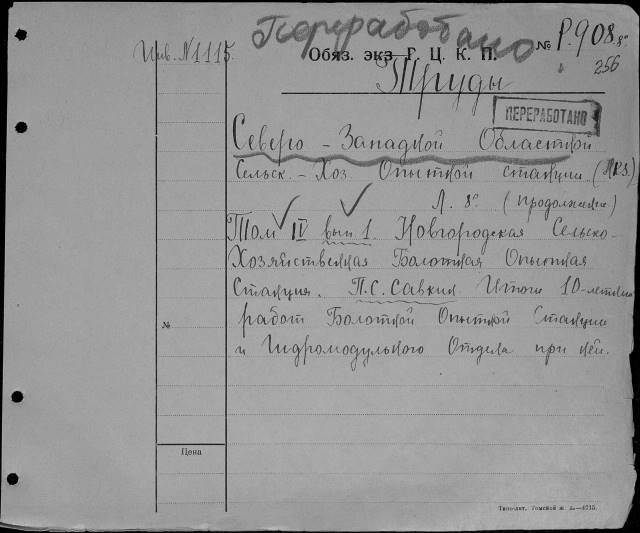 Переработано
Инв. N 1115.
Обяз. экз Г. Ц. К. П. № Р.908. 8°
256
Труды
ПЕРЕРАБОТАНО
Северо - Западной Областной
Сельск. - Хоз. Опытной станции (
Л. 8° (продолжение)
Том IV вып 1 Новгородская Сельско-
Хозяйственная Болотная Опытная
Станция. П.С. Савкин. Итоги 10-летних
работ Болотной Опытной Станции
№
и Гидромодульного Отдела при ней.
Цена
Типо-лит. Томской ж. д.—4715.